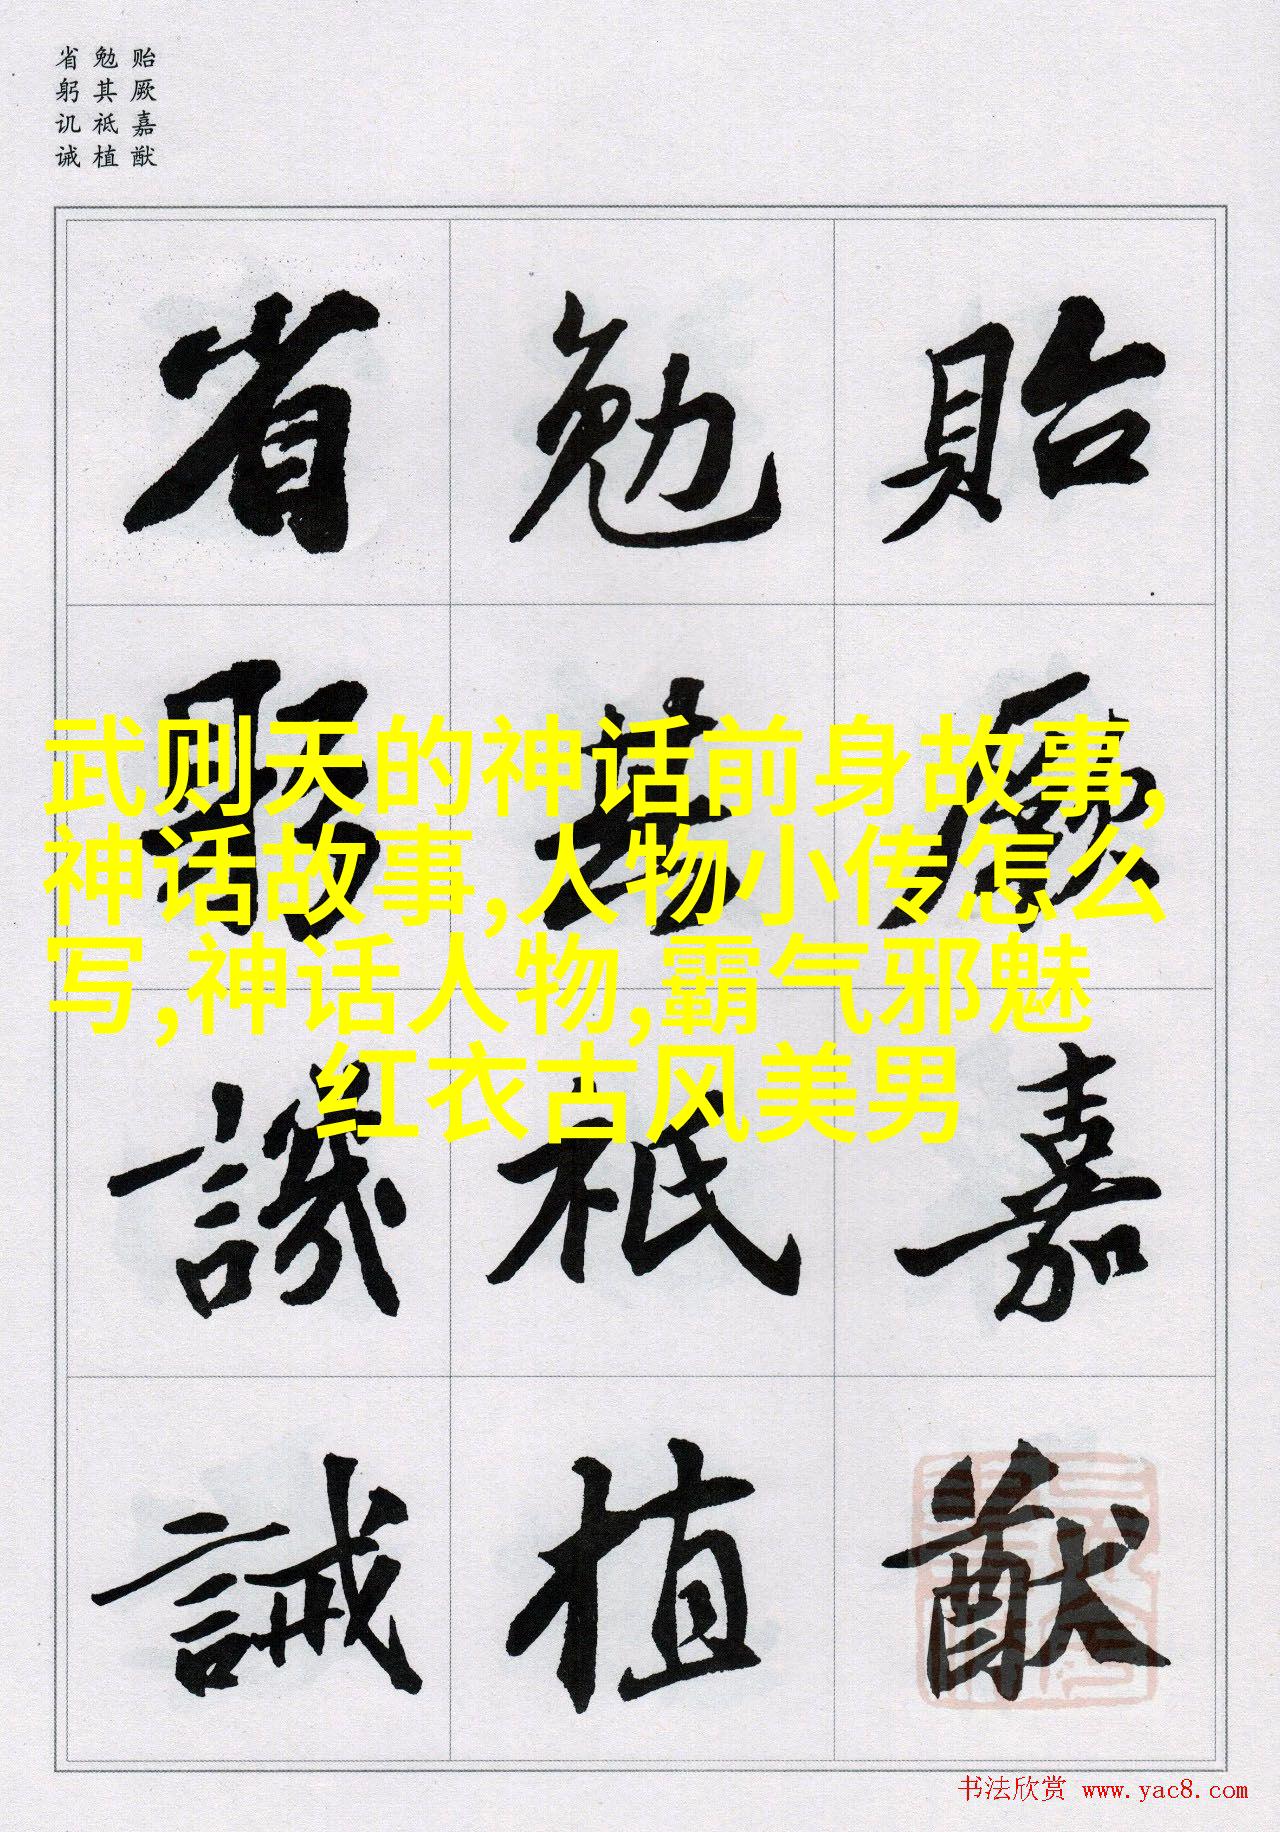 贻厥嘉猷
勉其祗植
省躬讥诫
貽厥嘉猷
勉其祗植
省躬譏誡
武则天的神话前身故事,
神话故事,人物小传怎么
写,神话人物,霸气邪魅
红衣古风美男
书法欣赏 www.yac8.com